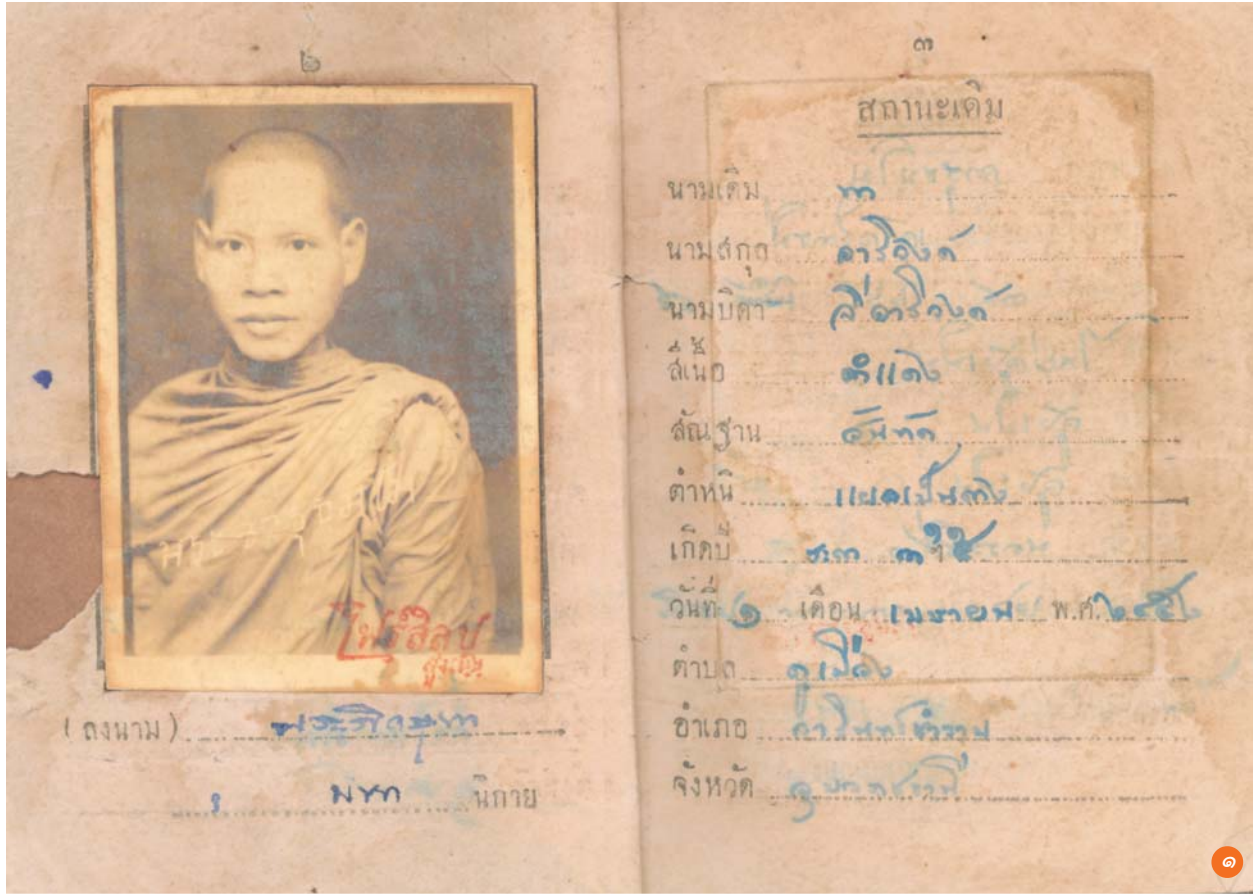 ๒
ไพร์ศิลป
(ลงนาม) พระภิกษุ
มหา นิกาย
๓
สถานะเดิม
นามเดิม
นามสกุล อารีวงศ์
นามบิดา สี อารีวงศ์
สีเนื้อ ดำแดง
สัณฐาน สันทัด
ตำหนิ แผลเป็น
เกิดปี
วันที่ ๑ เดือน เมษายน พ.ศ. ๒๔๕๒
ตำบล คูเมือง
อำเภอ วารินชำราบ
จังหวัด อุบลราชธานี
๑